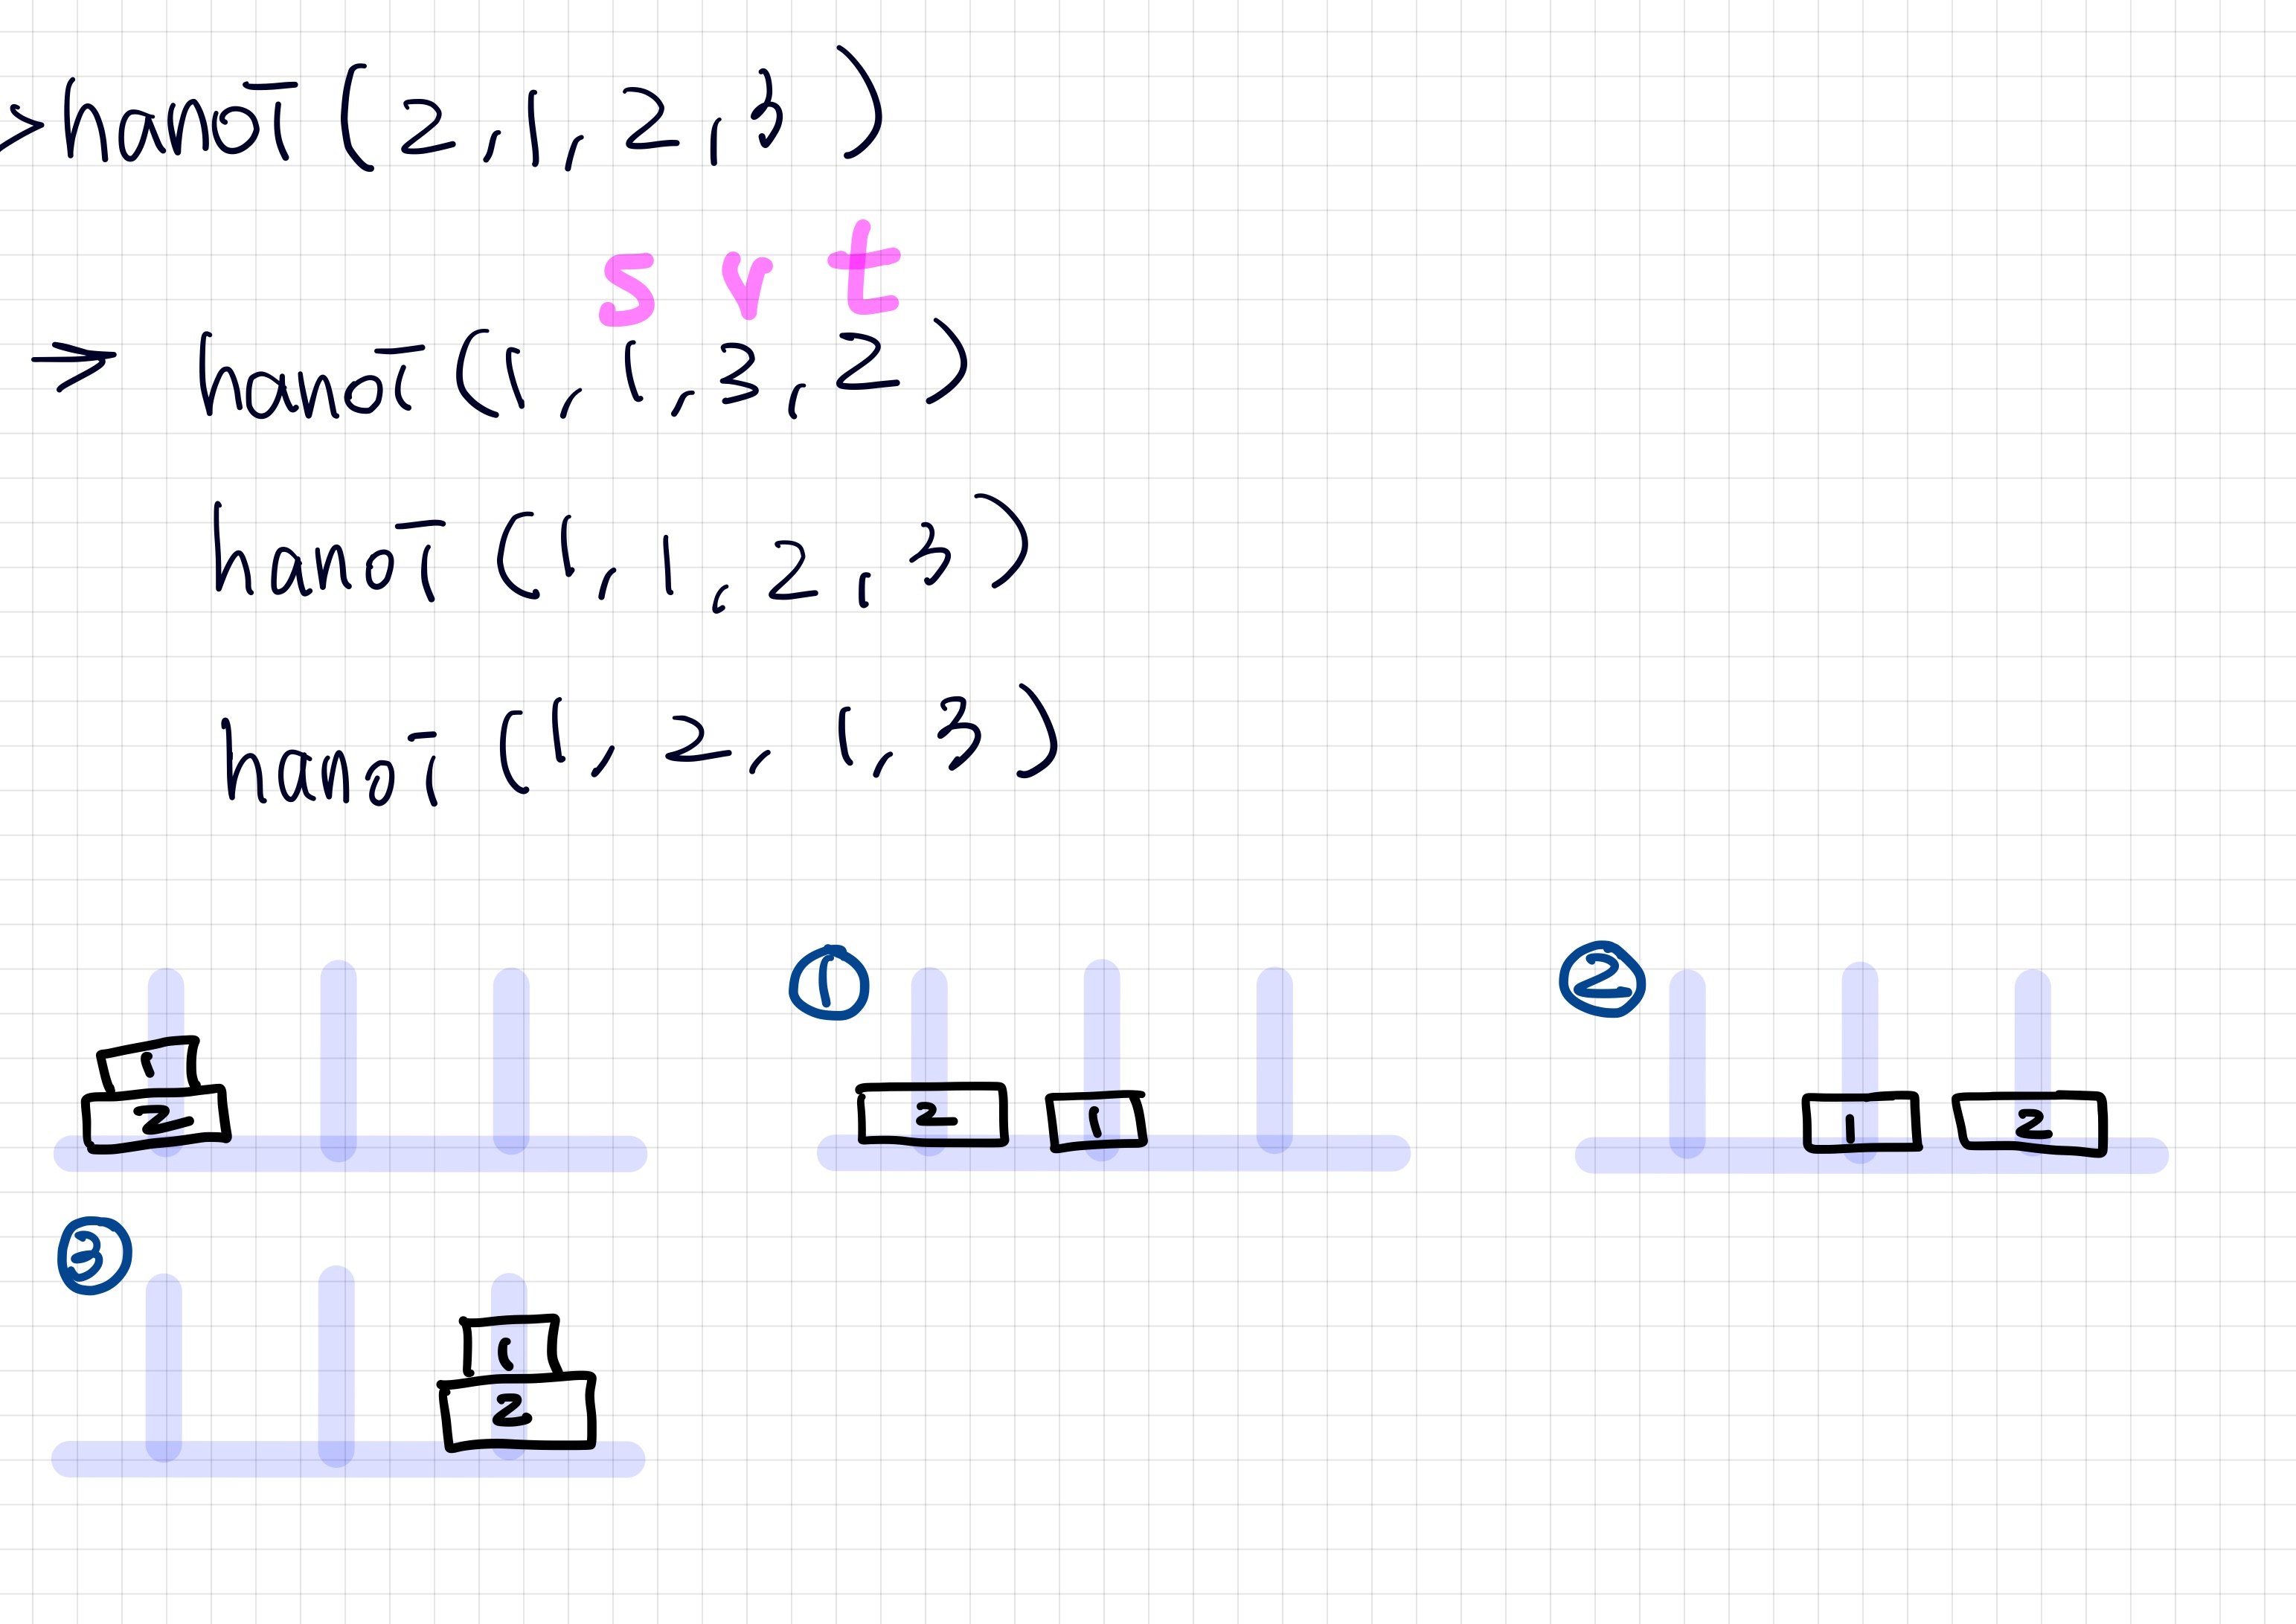 >hanoi (2,1,2,3)
s r t
→ hanoi (1,1,3,2)
hanoi (1,1,2,3)
hanoi (1,2,1,3)
① ②
1 2
2 1
1 2
③
1
2